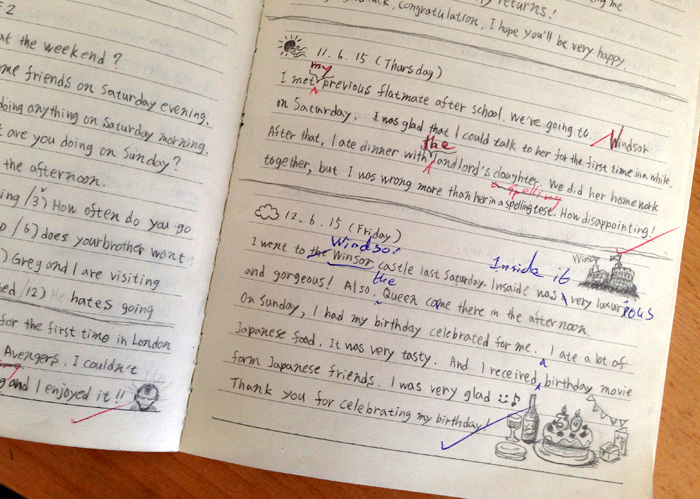 2
at the weekend?
me friends on Saturday evening.
doing anything on Saturday morning.
are you doing on Sunday?
the afternoon.
ing /3) How often do you go
/6) does your brother want
) Greg and I are visiting
ed /12) He hates going
for the first time in London
Avengers. I couldn't
and I enjoyed it!!
returns!
me
luck, congratulatron, I hope you'll be very happy.
11. 6. 15 (Thursday)
my
I met previous flatmate after school. We're going to Windsor
on Saturday. I was glad that I could talk to her for the first time in a while.
the
After that, I ate dinner with landlord's daughter. We did her homework
a spelling
together, but I was wrong more than her in a spelling test. How disappointing!
12. 6. 15 (Friday)
Windsor
Inside it
Winsor
I went to the Winsor castle last Saturday. Insaide was very luxurious
the
and gorgeous! Also Queen came there in the afternoon
On Sunday, I had my birthday celebrated for me. I ate a lot of
a
Japanese food. It was very tasty. And I received birthday movie
form Japanese friends. I was very glad
Thank you for celebrating my birthday!